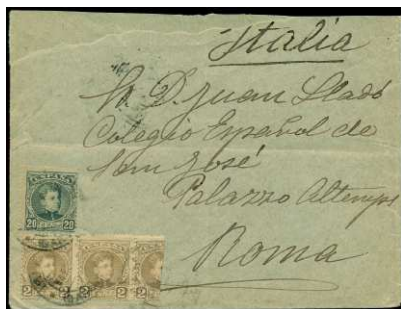 Italia
Sr. D. Juan Lladó
Colegio Español de
San José
Palazzo Altemps
Roma
ESPAÑA
20 20
ESPAÑA
2 2
2 2